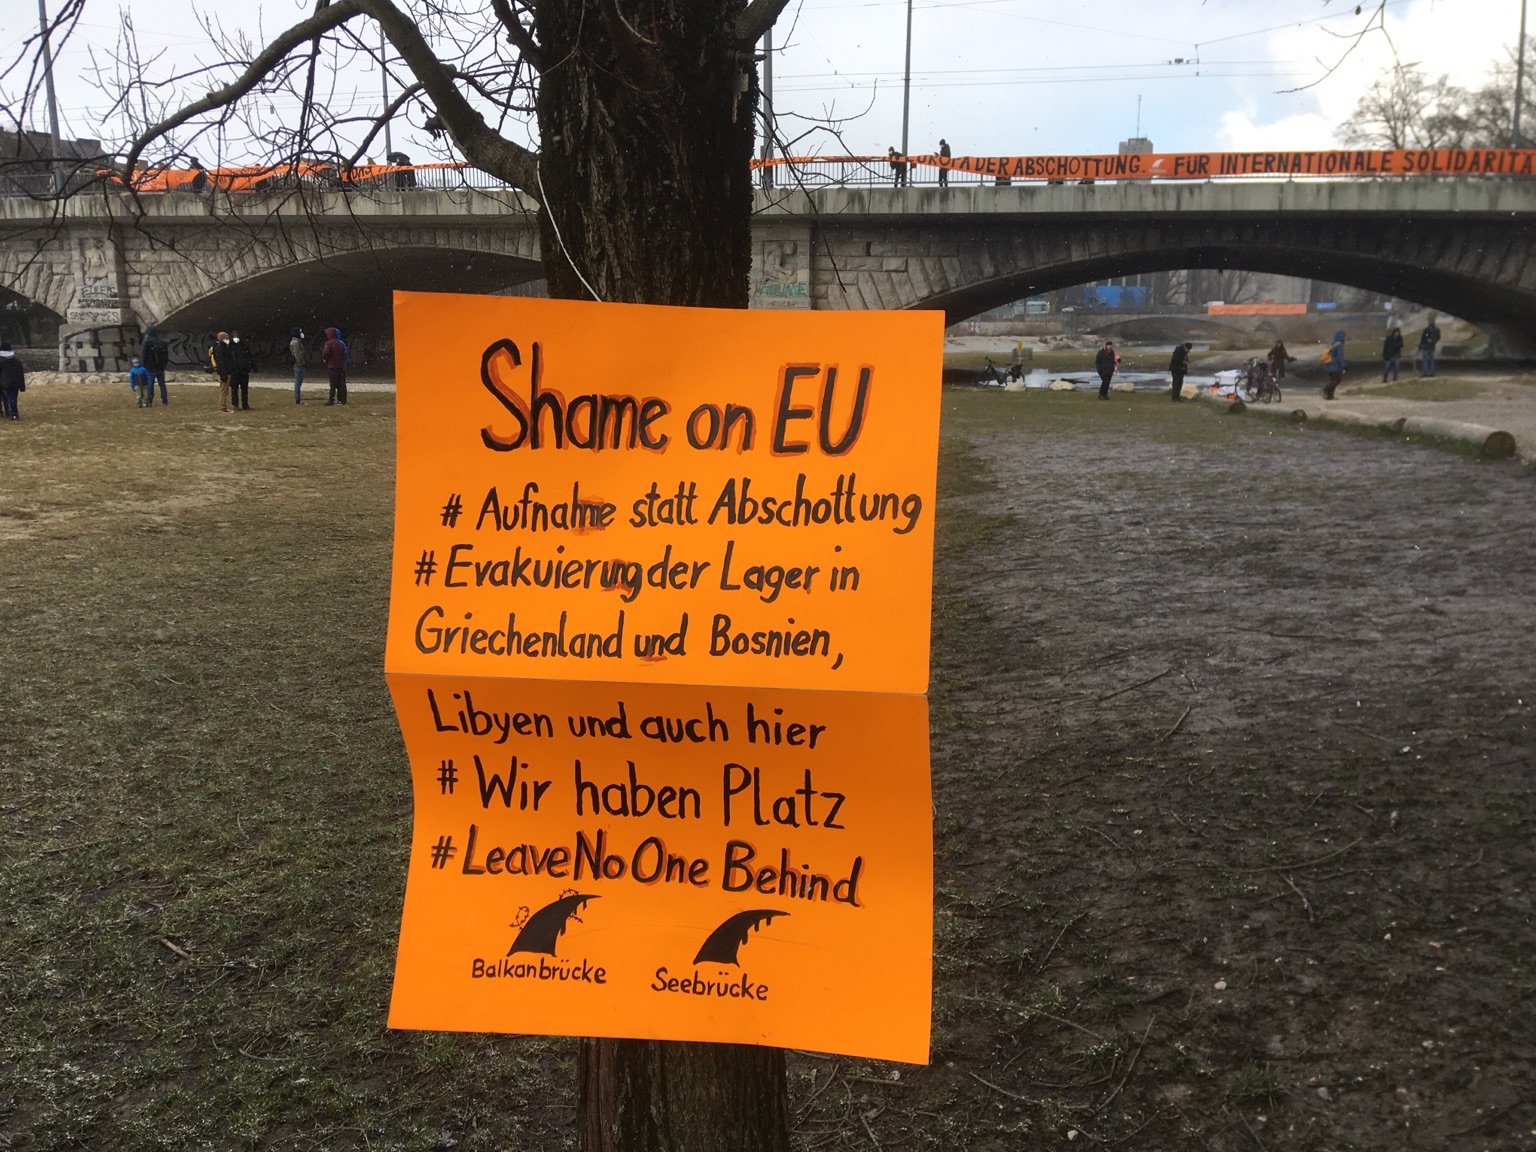 EUROPA DER ABSCHOTTUNG. FÜR INTERNATIONALE SOLIDARITÄ
Shame on EU
# Aufnahme statt Abschottung
# Evakuierung der Lager in
Griechenland und Bosnien,
Libyen und auch hier
# Wir haben Platz
# LeaveNoOne Behind
Balkanbrücke
Seebrücke